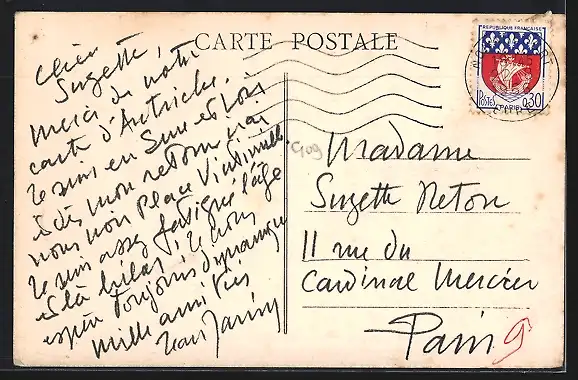 CARTE POSTALE
REPUBLIQUE FRANÇAISE
POSTES 0,30
PARIS
Chère
Suzette,
Merci de votre
carte d'Autriche.
Je suis en
mon retour
vous voir Place Vintimille
Je suis assez fatigué l'âge
est là hélas, je vous
espère toujours dynamique
Mille amitiés
Jean
Madame
Suzette Reton
11 rue du
Cardinal Mercier
Paris 9